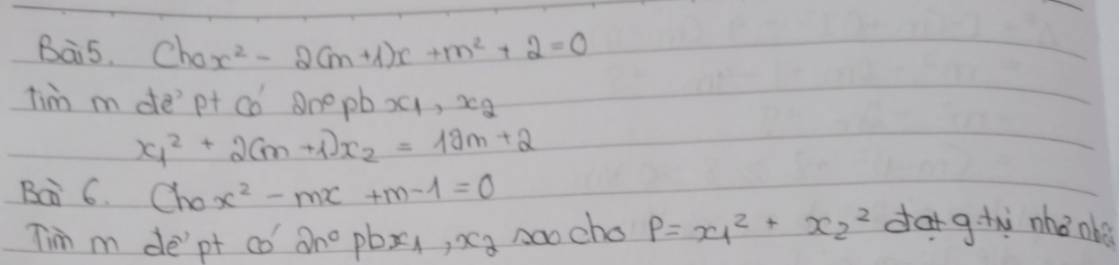 Bài 5. Cho x² - 2(m+1)x + m² + 2 = 0
Tìm m để pt có 2no pb x₁, x₂
x₁² + 2(m+1)x₂ = 12m + 2
Bài 6. Cho x² - mx + m - 1 = 0
Tìm m để pt có 2no pb x₁, x₂ sao cho P = x₁² + x₂² đạt g.trị nhỏ nhất